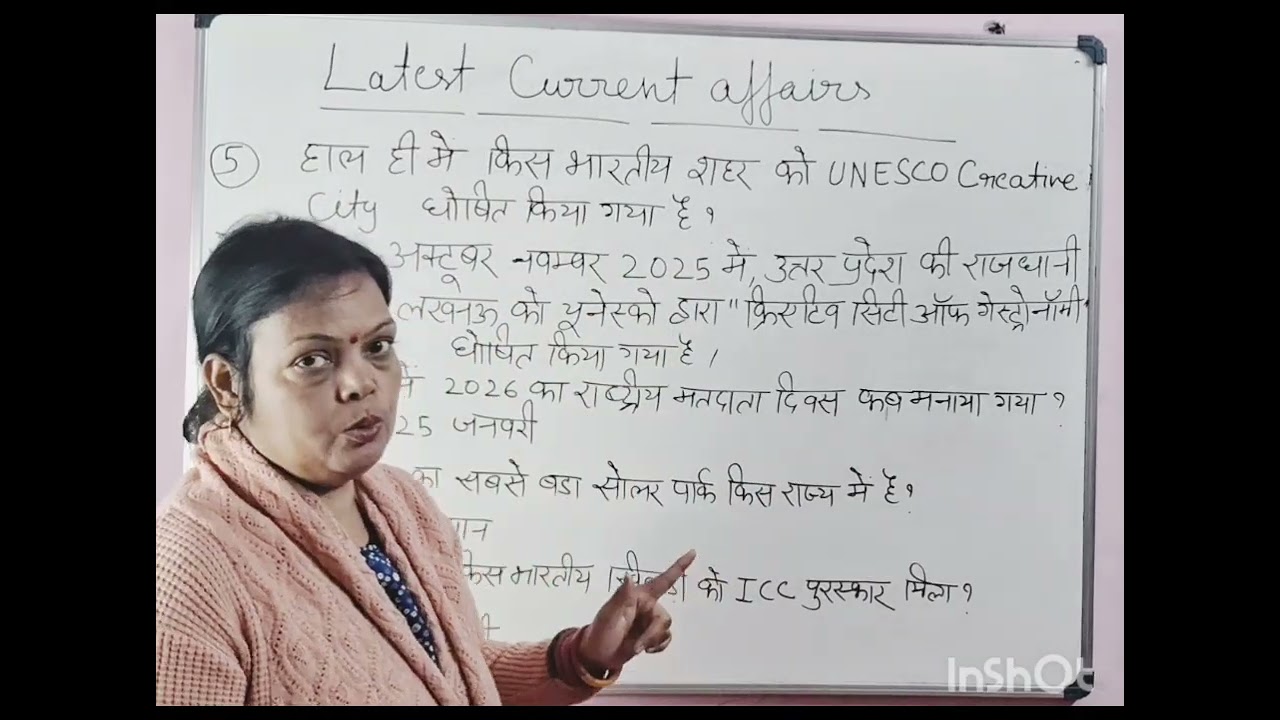 Latest Current affairs
⑤ हाल ही मे किस भारतीय शहर को UNESCO Creative
City घोषित किया गया है ?
अक्टूबर नवम्बर 2025 में, उत्तर प्रदेश की राजधानी
लखनऊ को यूनेस्को द्वारा "क्रिएटिव सिटी ऑफ गेस्ट्रोनॉमी"
घोषित किया गया है ।
में 2026 का राष्ट्रीय मतदाता दिवस कब मनाया गया ?
25 जनवरी
का सबसे बडा सोलर पार्क किस राज्य में है ?
किस भारतीय को ICC पुरस्कार मिला ?
InShOt